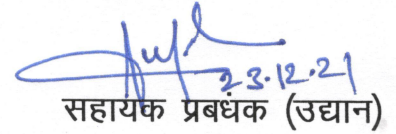 23.12.21
सहायक प्रबधंक (उद्यान)